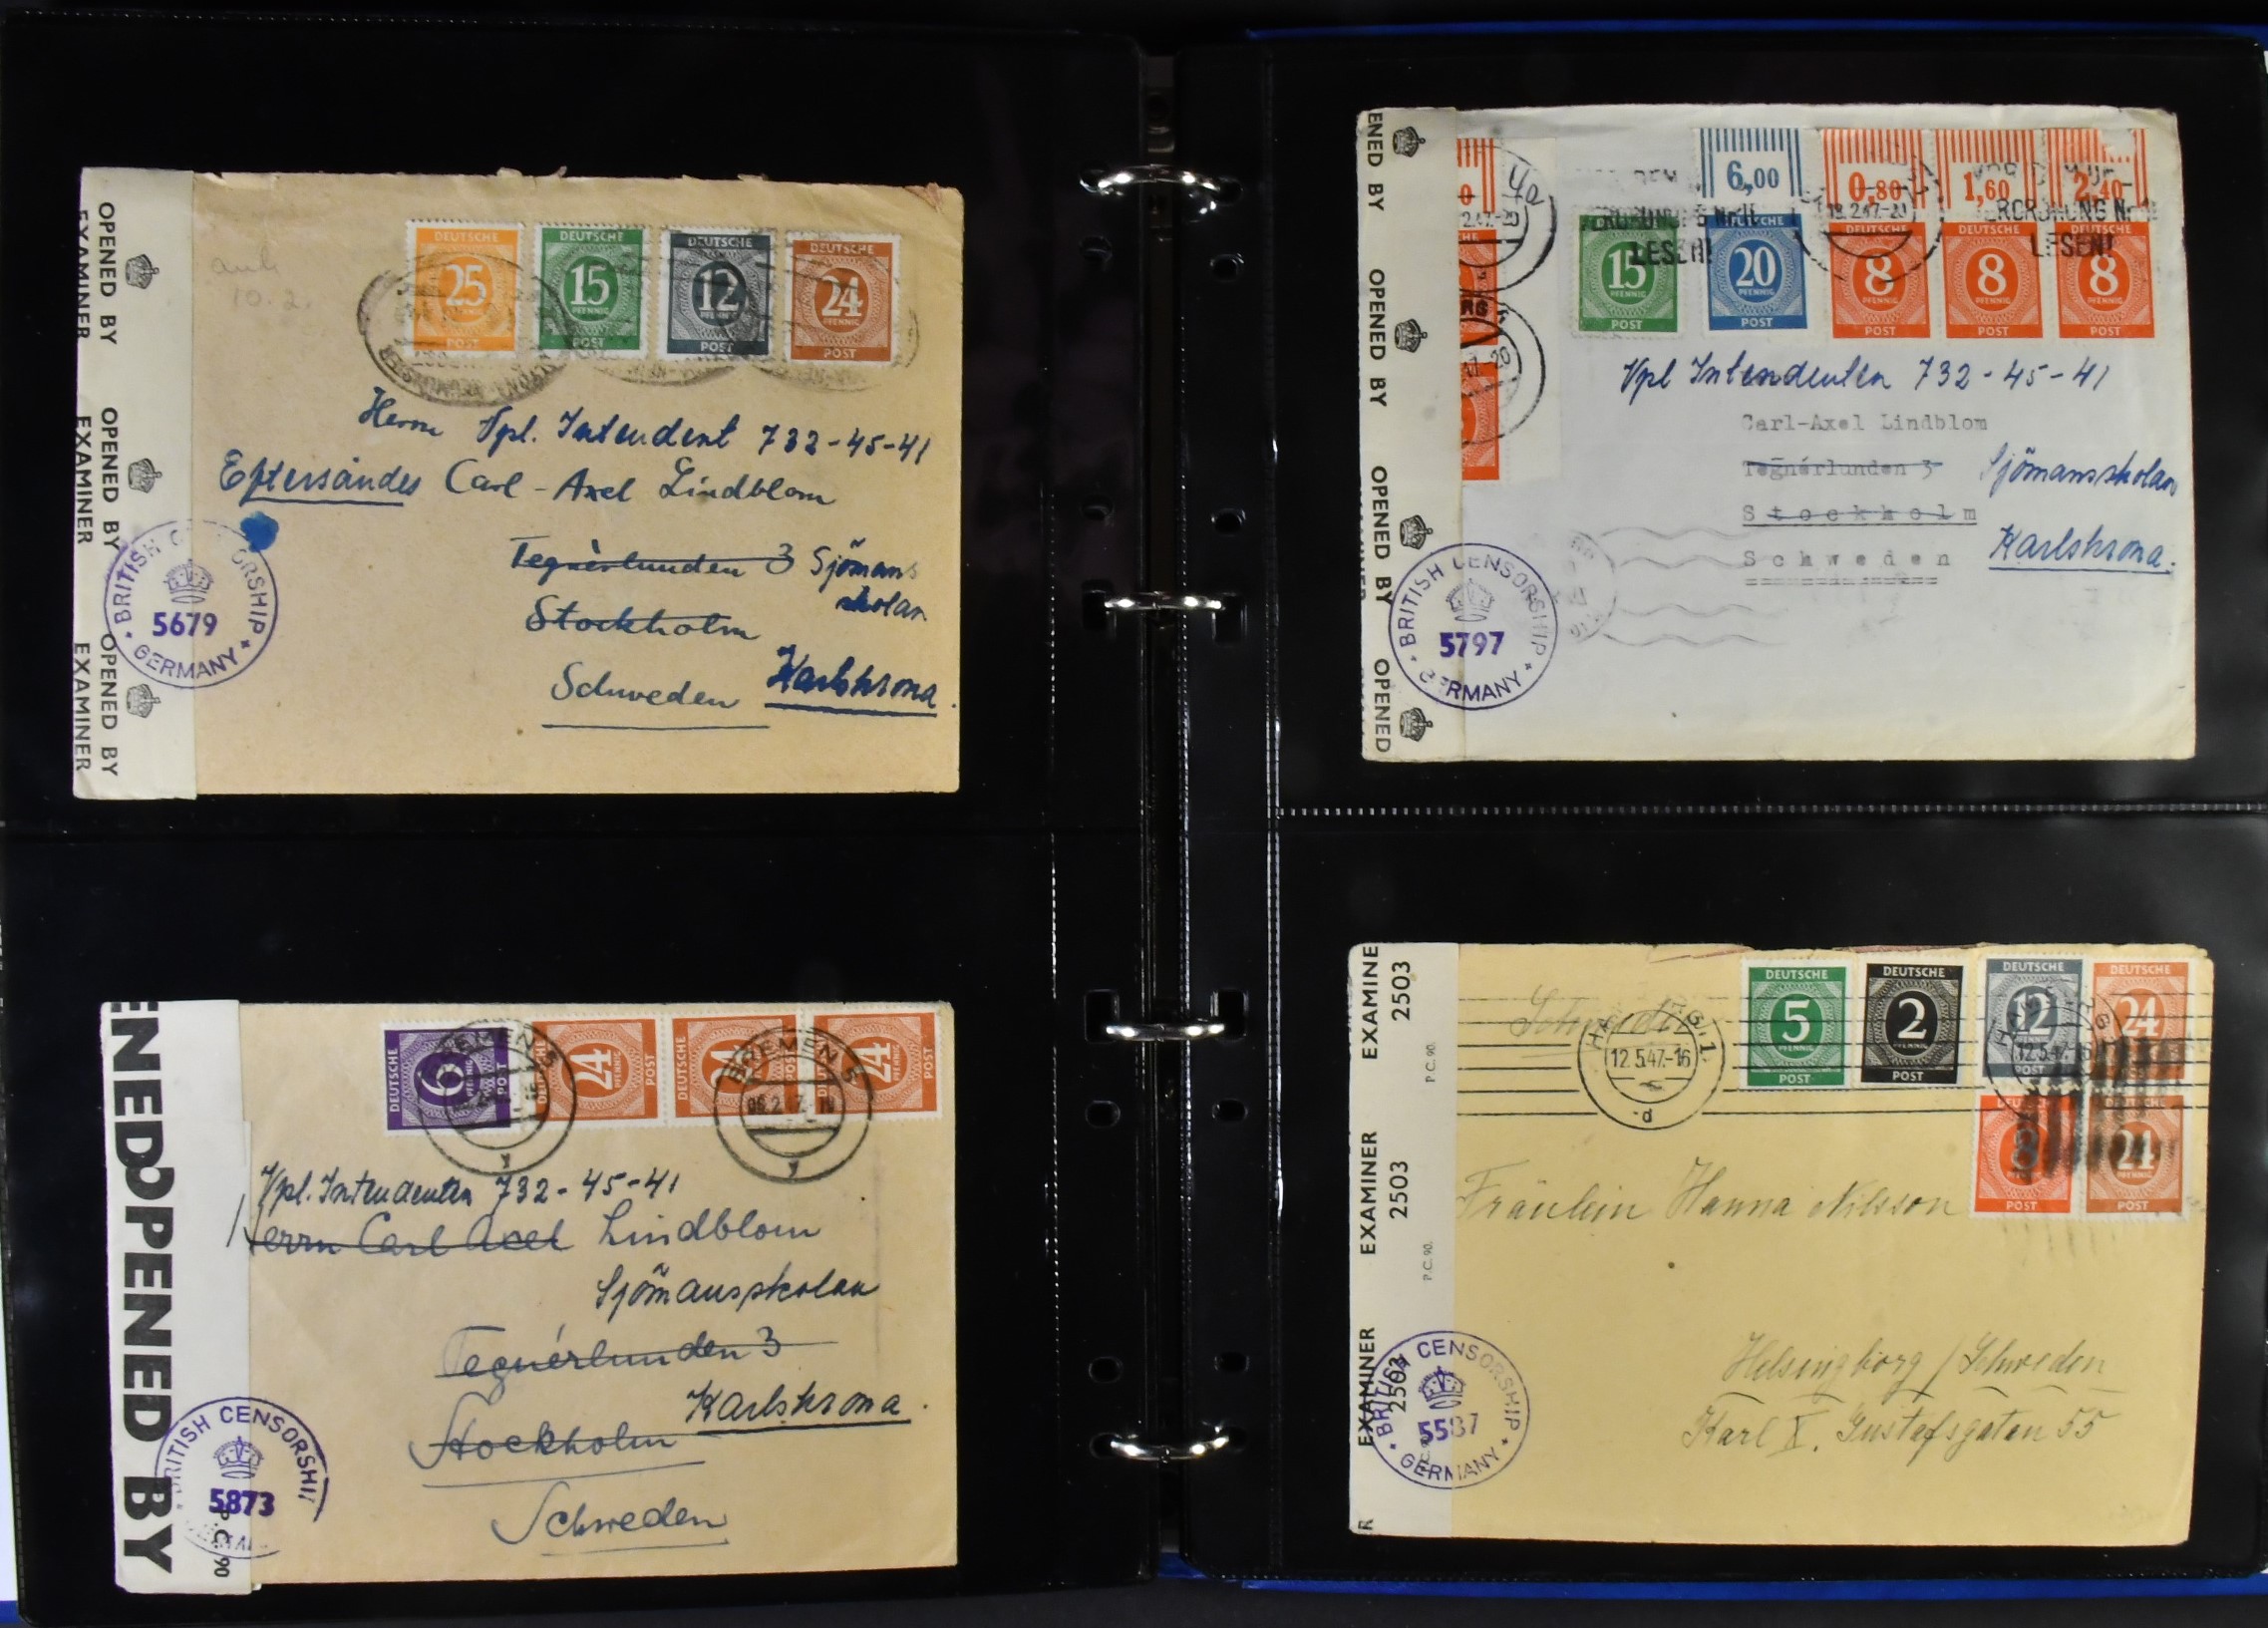 OPENED BY
EXAMINER
OPENED BY
EXAMINER
OPENED BY
EXAMINER
DEUTSCHE
25
PFENNIG
POST
DEUTSCHE
15
PFENNIG
POST
DEUTSCHE
12
PFENNIG
POST
DEUTSCHE
24
PFENNIG
POST
10.2.
Herrn Vpl. Intendent 732-45-41
Eftersändes Carl-Axel Lindblom
Tegnérlunden 3 Sjömans
skolan
Stockholm
Schweden Karlskrona.
BRITISH C ORSHIP
5679
GERMANY
ENED BY
OPENED BY
OPENED BY
OPENED
0
6,00
0,80
1,60
2,40
2.47.-20
19.2.47.-20
VERORDNUNG Nr.
LESEN!
LESEN!
DEUTSCHE
15
PFENNIG
POST
DEUTSCHE
20
PFENNIG
POST
DEUTSCHE
8
PFENNIG
POST
DEUTSCHE
8
PFENNIG
POST
DEUTSCHE
8
PFENNIG
POST
Vpl Intendenten 732-45-41
Carl-Axel Lindblom
Tegnérlunden 3 Sjömansskolan
Stockholm
Schweden Karlskrona.
BRITISH CENSORSHIP
5797
GERMANY
ENED
OPENED BY
P.C. 90
DEUTSCHE
6
PFENNIG
POST
24
POST
24
POST
DEUTSCHE
24
PFENNIG
POST
BREMEN 5
BREMEN 5
06.2.47
y
y
Vpl. Intendenten 732-45-41
Herrn Carl Axel Lindblom
Sjömansskolan
Tegnérlunden 3
Karlskrona.
Stockholm
Schweden
BRITISH CENSORSHIP
5873
EXAMINE
2503
P.C. 90.
EXAMINER
2503
P.C. 90.
EXAMINER
2503
R
Schweden
12.5.47.-16
1
d
DEUTSCHE
5
PFENNIG
POST
DEUTSCHE
2
PFENNIG
POST
DEUTSCHE
12
PFENNIG
POST
12.5.47.-16
DEUTSCHE
24
DEUTSCHE
8
POST
DEUTSCHE
24
POST
Fräulein Hanna Nilsson
Helsingborg / Schweden
Karl X. Gustafsgatan 55
BRITISH CENSORSHIP
5587
GERMANY